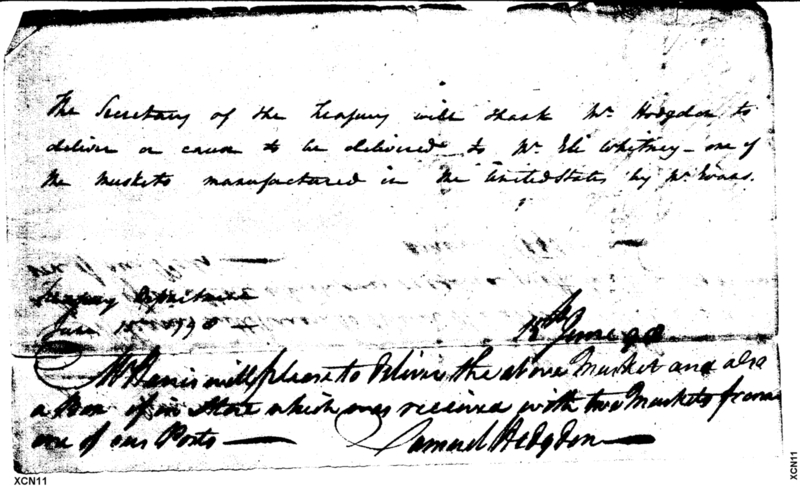 The Secretary of the Treasury will thank Mr. Hodgdon to
deliver or cause to be delivered to Mr. Eli Whitney - one of
the Muskets manufactured in the United States by Mr. Evans.
Treasury Department
June 15. 1798
15th June 98
Mr Harris will please to deliver the above Musket and also
a Box if in Store which was received with two Muskets from
one of our Posts —
Samuel Hodgdon
XCN11
XCN11